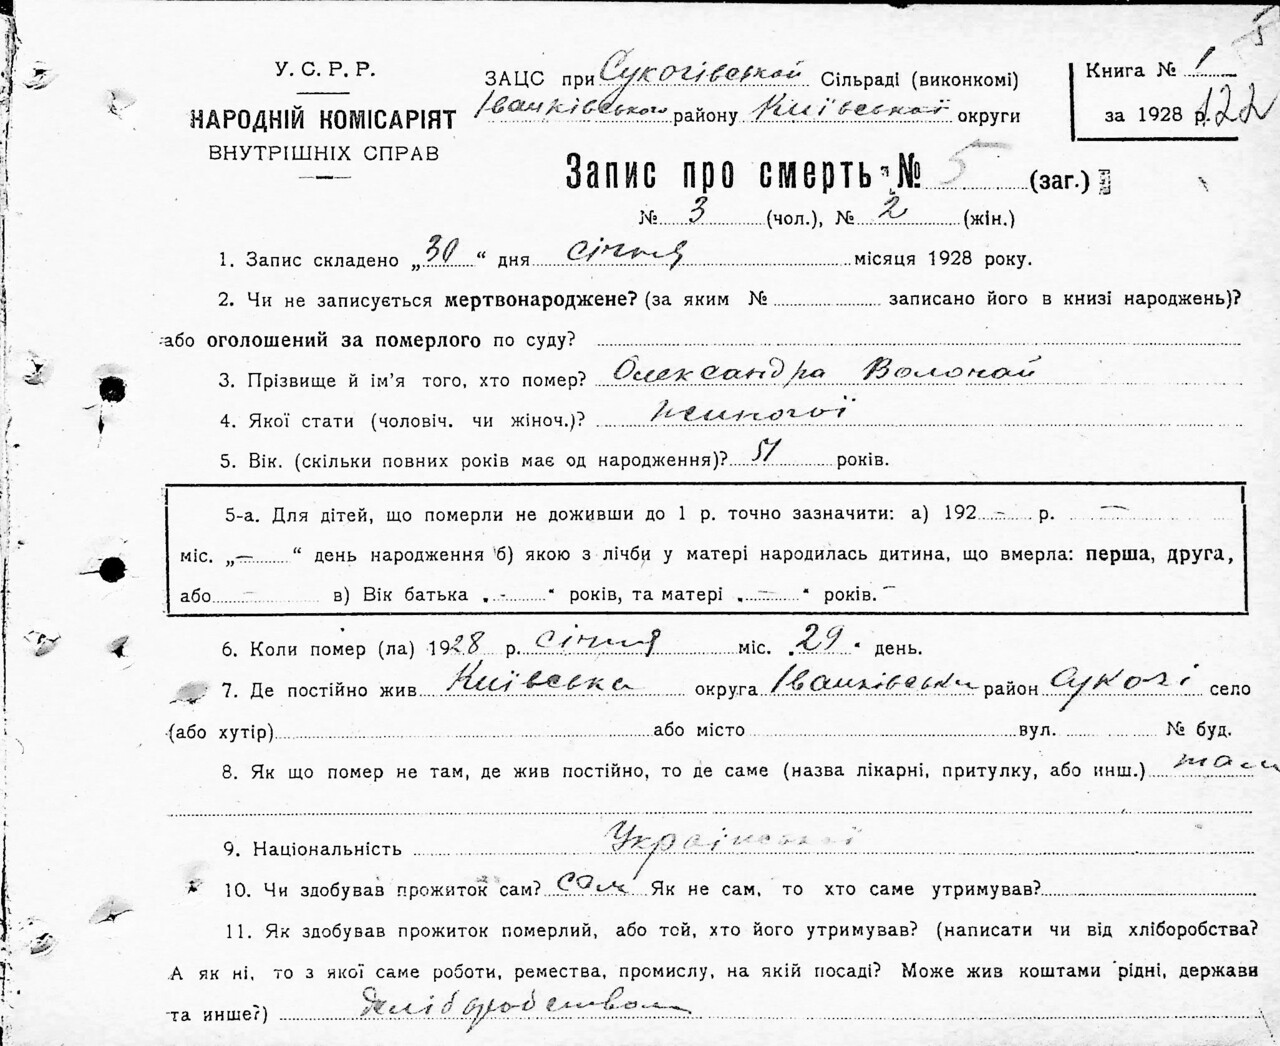 У. С. Р. Р.
НАРОДНІЙ КОМІСАРІЯТ
ВНУТРІШНІХ СПРАВ
ЗАЦС при Сукачівській Сільраді (виконкомі)
Іванківського району Київської округи
Книга № 1
за 1928 р. 122
Запис про смерть № 5 (заг.)
№ 3 (чол.), № 2 (жін.)
1. Запис складено „30“ дня січня місяця 1928 року.
2. Чи не записується мертвонароджене? (за яким № записано його в книзі народжень)?
або оголошений за померлого по суду?
3. Прізвище й ім'я того, хто помер? Олександра Волохай
4. Якої статі (чоловіч. чи жіноч.)? жиночої
5. Вік. (скільки повних років має од народження)? 51 років.
5-а. Для дітей, що померли не доживши до 1 р. точно зазначити: а) 192 – р. –
міс. „–“ день народження б) якою з лічби у матері народилась дитина, що вмерла: перша, друга,
або – в) Вік батька „-“ років, та матері „–“ років. –
6. Коли помер (ла) 1928 р. січня міс. „29“ день.
7. Де постійно жив Київська округа Іванківськи район Сукачі село
(або хутір) або місто вул. № буд.
8. Як що помер не там, де жив постійно, то де саме (назва лікарні, притулку, або инш.) там
9. Національність Української
10. Чи здобував прожиток сам? сам Як не сам, то хто саме утримував?
11. Як здобував прожиток померлий, або той, хто його утримував? (написати чи від хліборобства?
А як ні, то з якої саме роботи, ремества, промислу, на якій посаді? Може жив коштами рідні, держави
та инше?) хліборобством